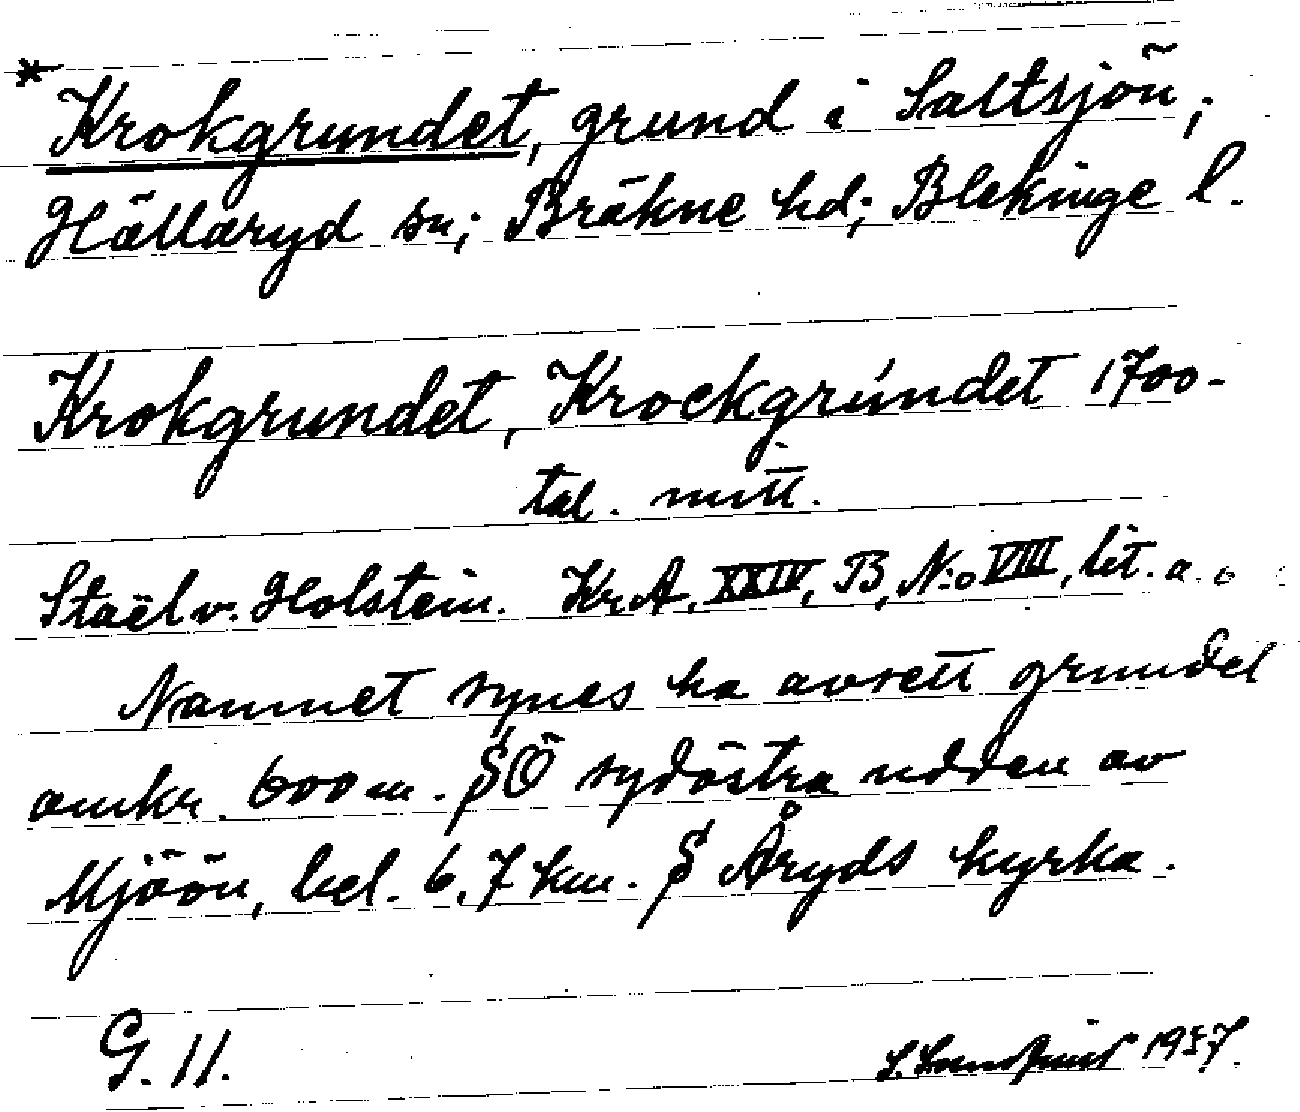 * Krokgrundet, grund i Saltsjön;
Hällaryd sn; Bräkne hd; Blekinge l.
Krokgrundet, Krockgrúndet 1700-
tal. mitt.
Staël v. Holstein. KrA, XXIV, B, N:o VIII, lit. a.
Namnet synes ha avsett grundet
omkr. 600 m. SÖ sydöstra udden av
Mjöön, bel. 6,7 km. S Åryds kyrka.
G. 11.
1957.